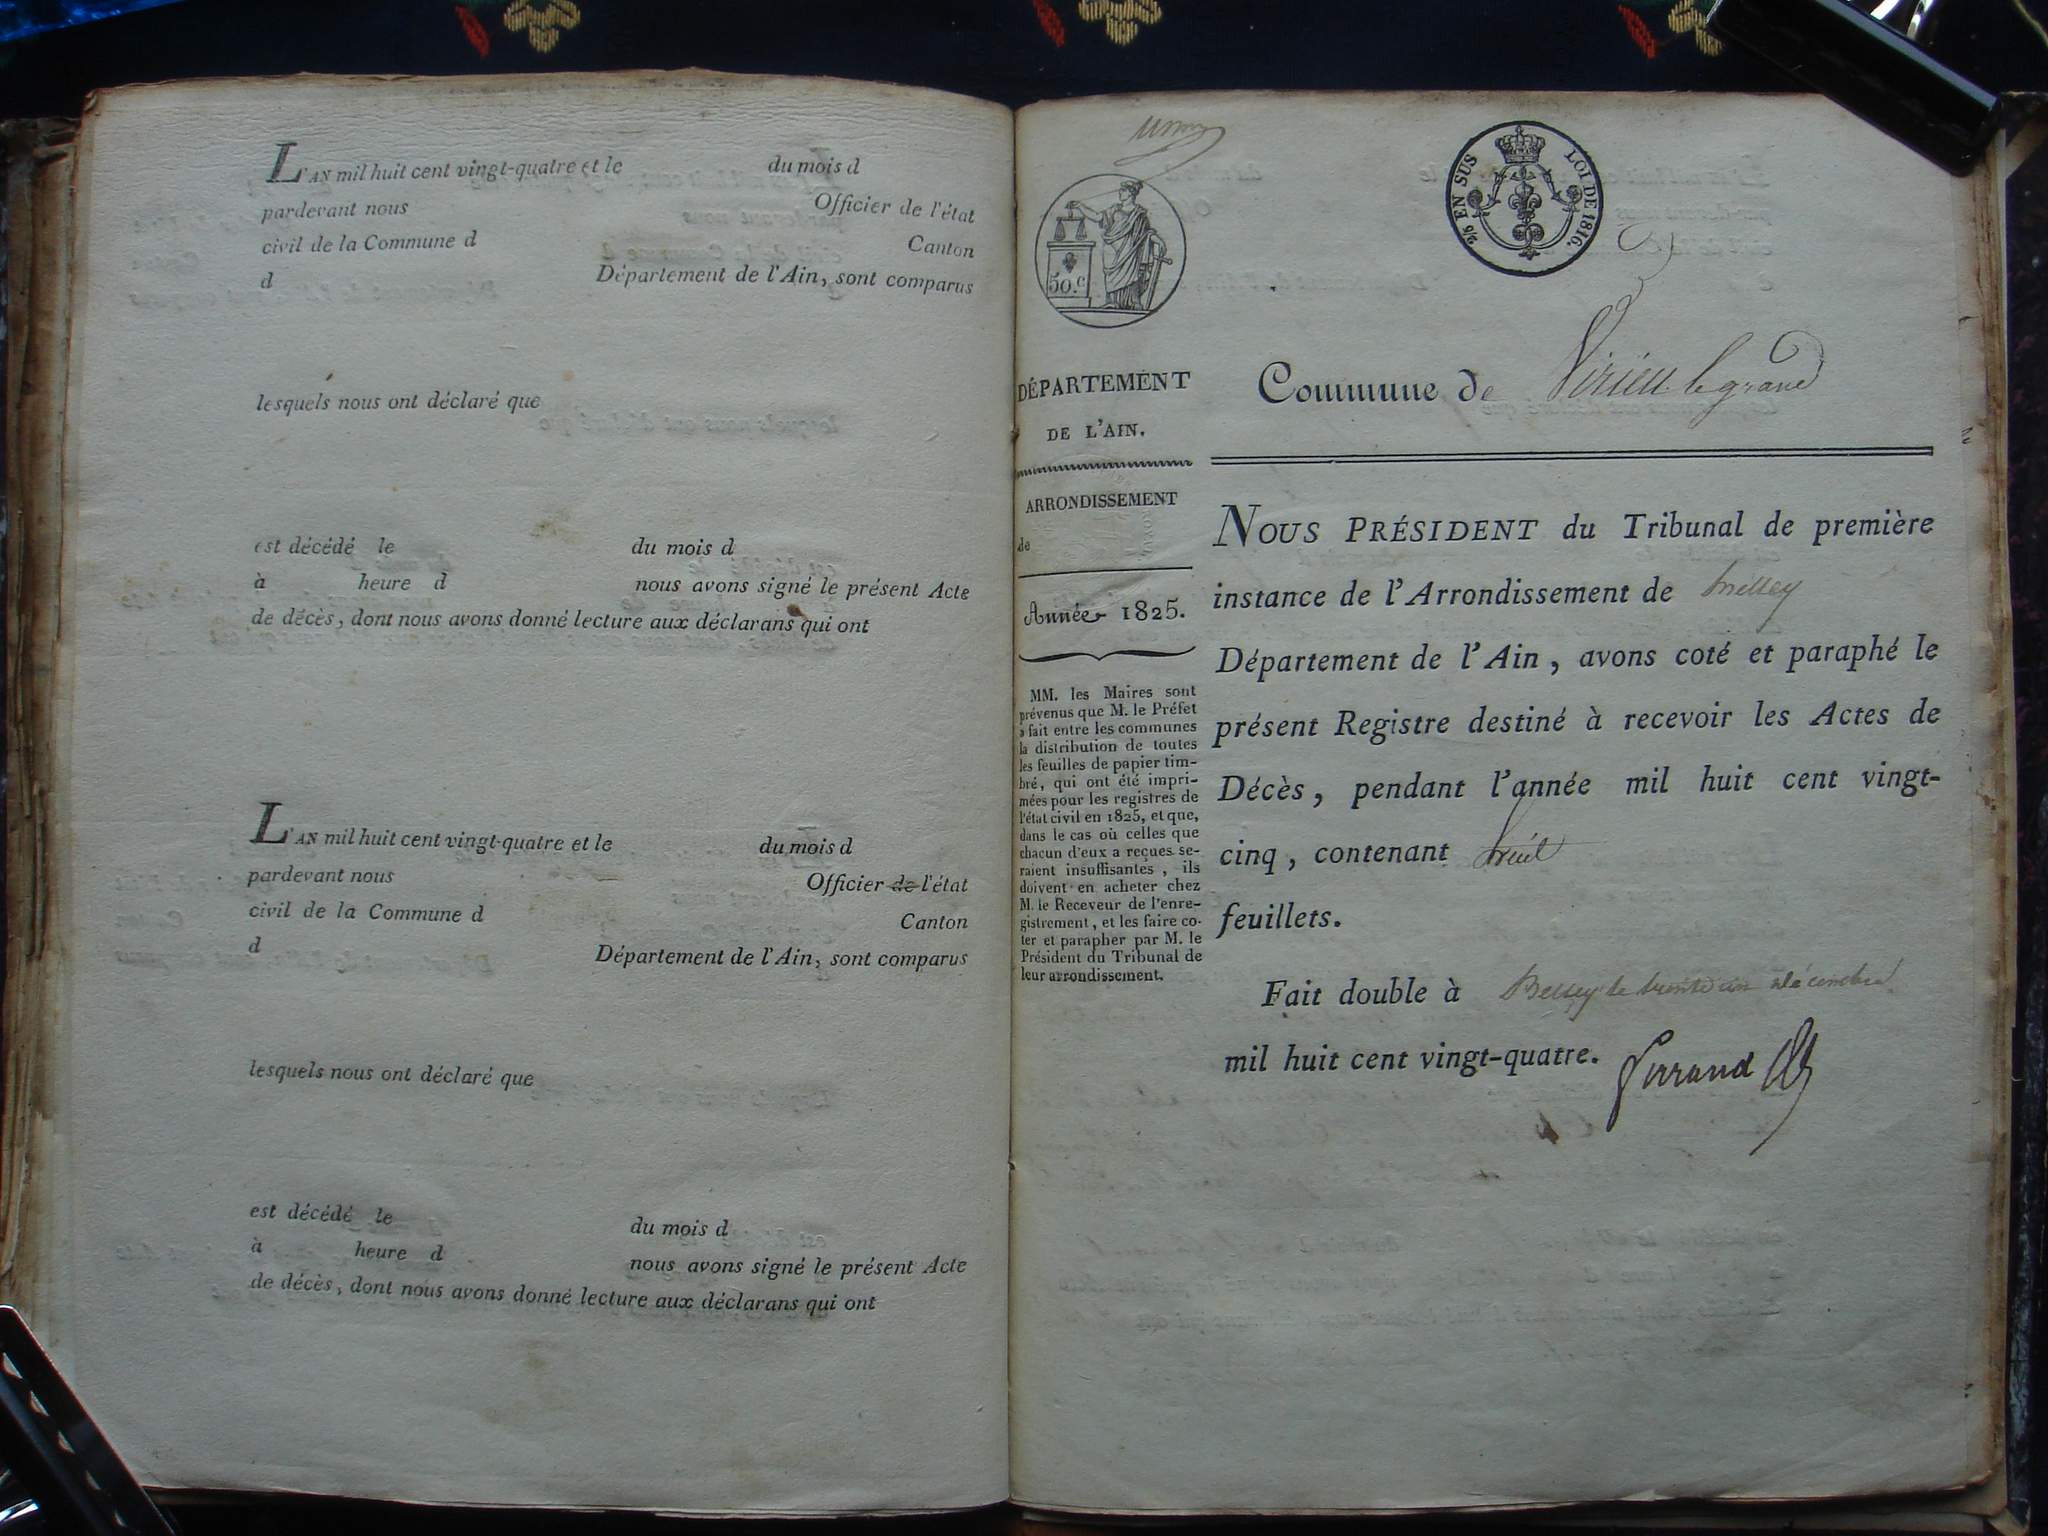 L'AN mil huit cent vingt-quatre et le du mois d
pardevant nous Officier de l'état
civil de la Commune d Canton
d Département de l'Ain, sont comparus
lesquels nous ont déclaré que
est décédé le du mois d
à heure d nous avons signé le présent Acte
de décès, dont nous avons donné lecture aux déclarans qui ont
L'AN mil huit cent vingt-quatre et le du mois d
pardevant nous Officier de l'état
civil de la Commune d Canton
d Département de l'Ain, sont comparus
lesquels nous ont déclaré que
est décédé le du mois d
à heure d nous avons signé le présent Acte
de décès, dont nous avons donné lecture aux déclarans qui ont
50.c
2/5 EN SUS LOI DE 1816.
DÉPARTEMENT
DE L'AIN.
ARRONDISSEMENT
de
Année 1825.
MM. les Maires sont
prévenus que M. le Préfet
a fait entre les communes
la distribution de toutes
les feuilles de papier tim-
bré, qui ont été impri-
mées pour les registres de
l'état civil en 1825, et que,
dans le cas où celles que
chacun d'eux a reçues se-
raient insuffisantes, ils
doivent en acheter chez
M. le Receveur de l'enre-
gistrement, et les faire co-
ter et parapher par M. le
Président du Tribunal de
leur arrondissement.
Commune de Virieu le grand
NOUS PRÉSIDENT du Tribunal de première
instance de l'Arrondissement de Belley
Département de l'Ain, avons coté et paraphé le
présent Registre destiné à recevoir les Actes de
Décès, pendant l'année mil huit cent vingt-
cinq, contenant
feuillets.
Fait double à Belley le trente un décembre
mil huit cent vingt-quatre.